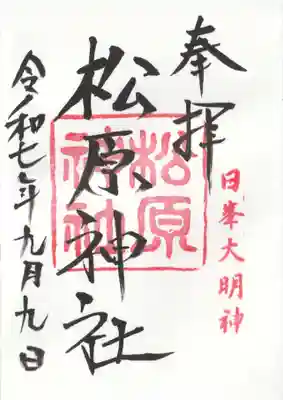 奉拝
日峯大明神
松原神社
松原
神社
令和七年九月九日